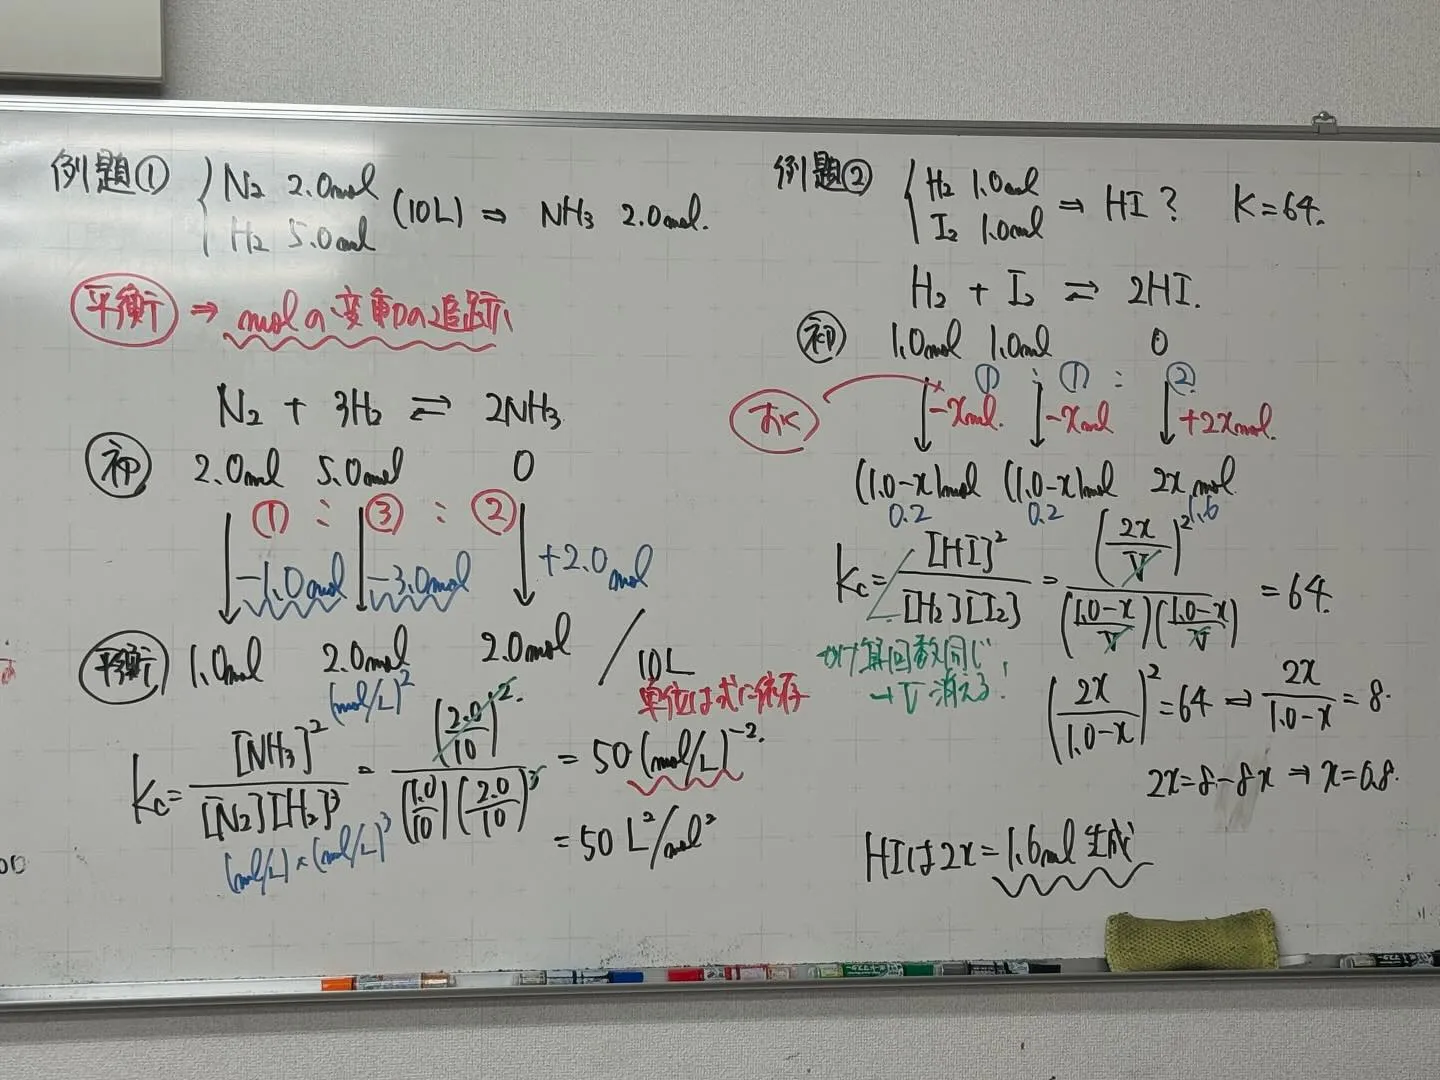 例題① { N₂ 2.0mol
H₂ 5.0mol (10L) ⇒ NH₃ 2.0mol.
平衡 ⇒ molの変動の追跡
N₂ + 3H₂ ⇄ 2NH₃
初 2.0mol 5.0mol 0
① : ③ : ②
-1.0mol -3.0mol +2.0mol
平衡 1.0mol 2.0mol 2.0mol / 10L
単位は式に依存
(mol/L)²
Kc = [NH₃]² / [N₂][H₂]³ = (2.0/10)² / (1.0/10)(2.0/10)³ = 50 (mol/L)⁻².
(mol/L) × (mol/L)³
= 50 L²/mol²
例題② { H₂ 1.0mol
I₂ 1.0mol ⇒ HI ? K=64.
H₂ + I₂ ⇄ 2HI.
初 1.0mol 1.0mol 0
① : ① : ②
-xmol. -xmol +2xmol.
(1.0-x)mol (1.0-x)mol 2x mol
0.2 0.2 1.6
Kc = [HI]² / [H₂][I₂] = (2x/V)² / (1.0-x/V)(1.0-x/V) = 64.
かけ算回数同じ
→ V 消える!
(2x/1.0-x)² = 64 ⇒ 2x/1.0-x = 8.
2x=8-8x ⇒ x=0.8.
HIは2x=1.6mol生成